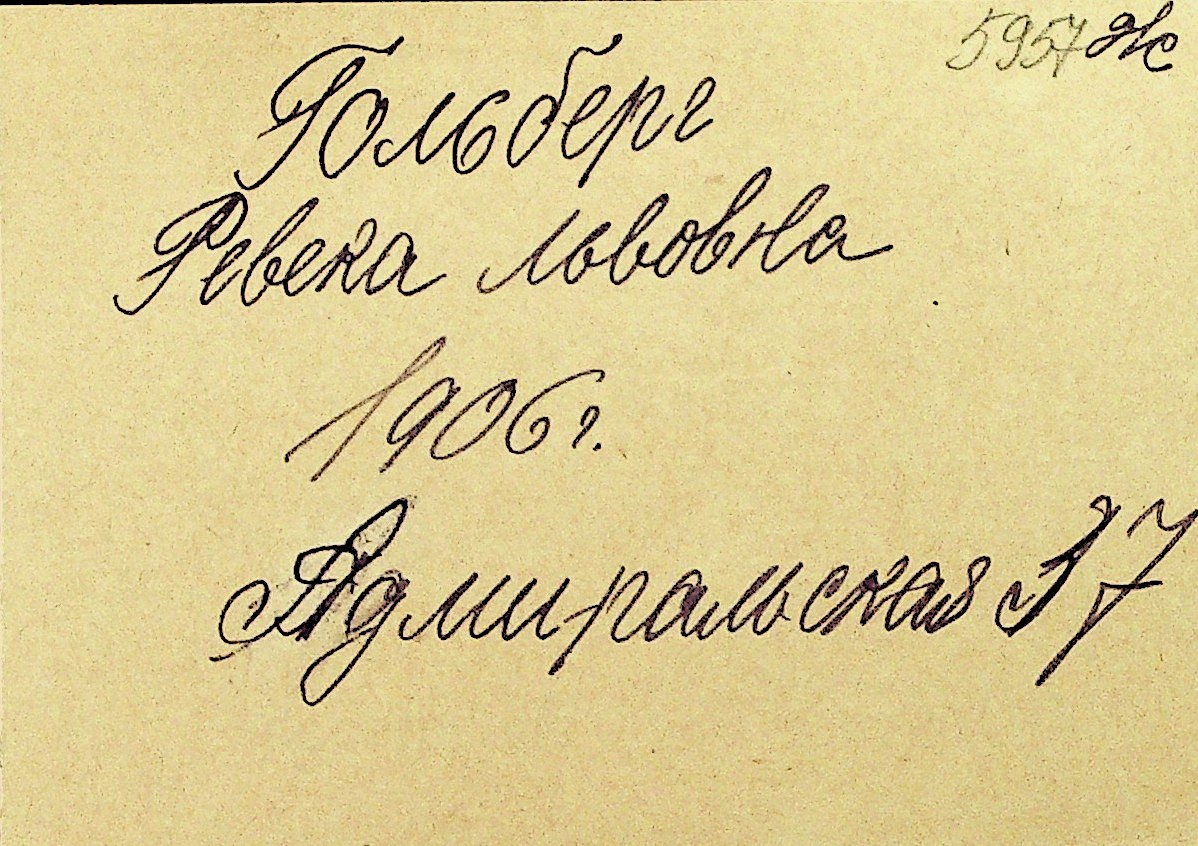 5957 Ж
Гольберг
Ревека Львовна
1906 г.
Адмиральская 37